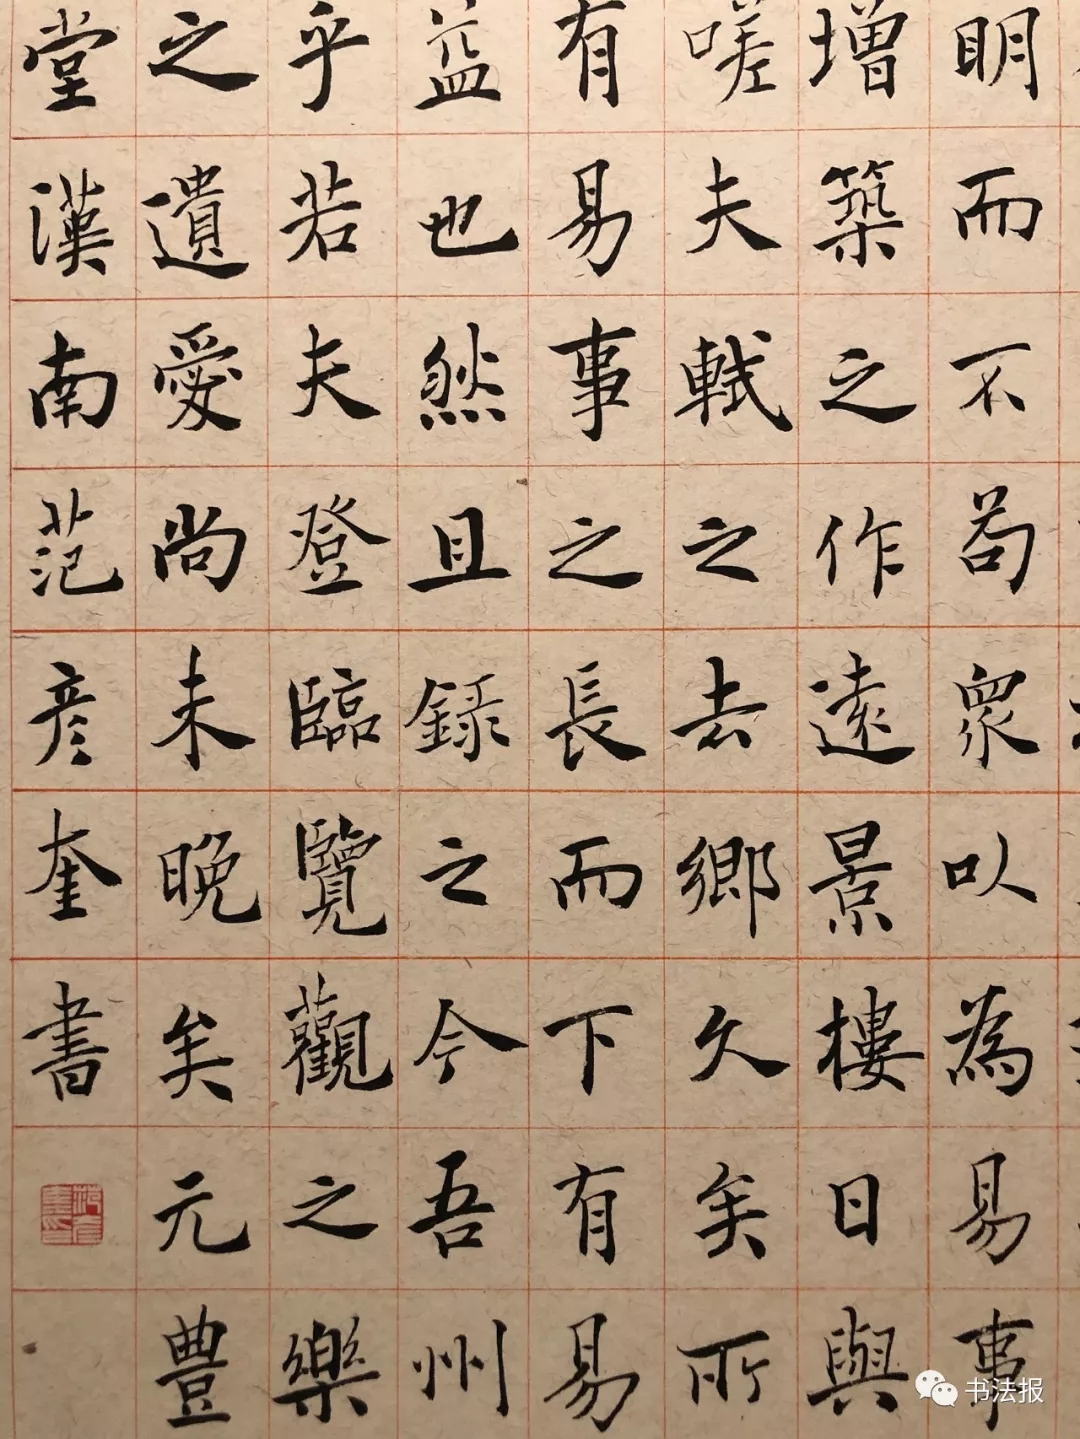 明而不苟衆以為易事
增築之作遠景樓日與
嗟夫軾之去鄉久矣所
有易事之長而下有易
益也然且錄之今吾州
乎若夫登臨覽觀之樂
之遺愛尚未晚矣元豐
堂漢南范彥奎書
书法报